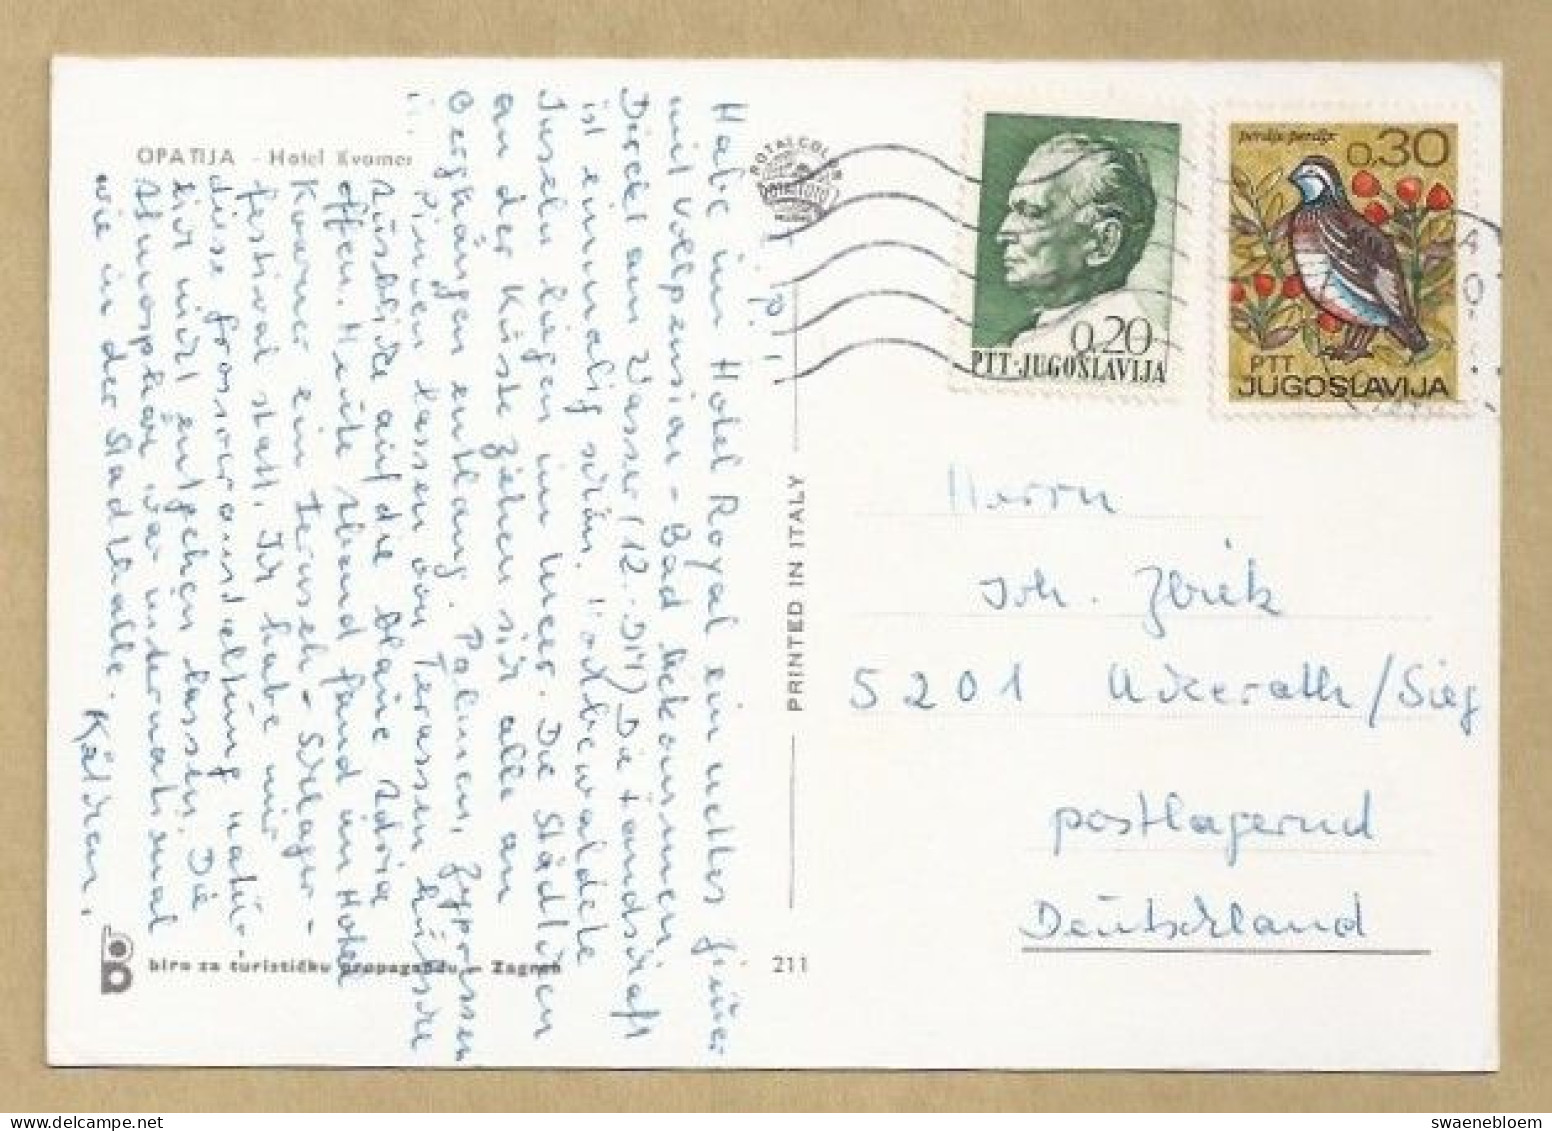 OPATIJA - Hotel Kvarner
ROTALCOLOR
Habe im Hotel Royal ein nettes Zimmer
mit Vollpension - Bad bekommen.
Direkt am Wasser (12.- DM) Die Landschaft
ist einmalig schön. Lorbewaldete
Inseln liegen im Meer. Die Städtchen
an der Küste ziehen sich alle an
Berghängen entlang. Palmen, Zypressen
Pinien lassen von Terassen hübsche
Ausblicke auf die blaue Adria
offen. Heute Abend fand im Hotel
Kvarner ein Fernseh-Schlager-
festival statt. Ich habe mir
diese Grossveranstaltung natür-
lich nicht entgehen lassen. Die
Atmosphäre war international
wie in der Stadthalle.
Käthchen.
biro za turističku propagandu - Zagreb
PRINTED IN ITALY
211
0,20
PTT-JUGOSLAVIJA
perdix perdix
0,30
PTT
JUGOSLAVIJA
Herrn
Joh. Zbick
5201 Uckerath/Sieg
postlagernd
Deutschland
swaenebloem